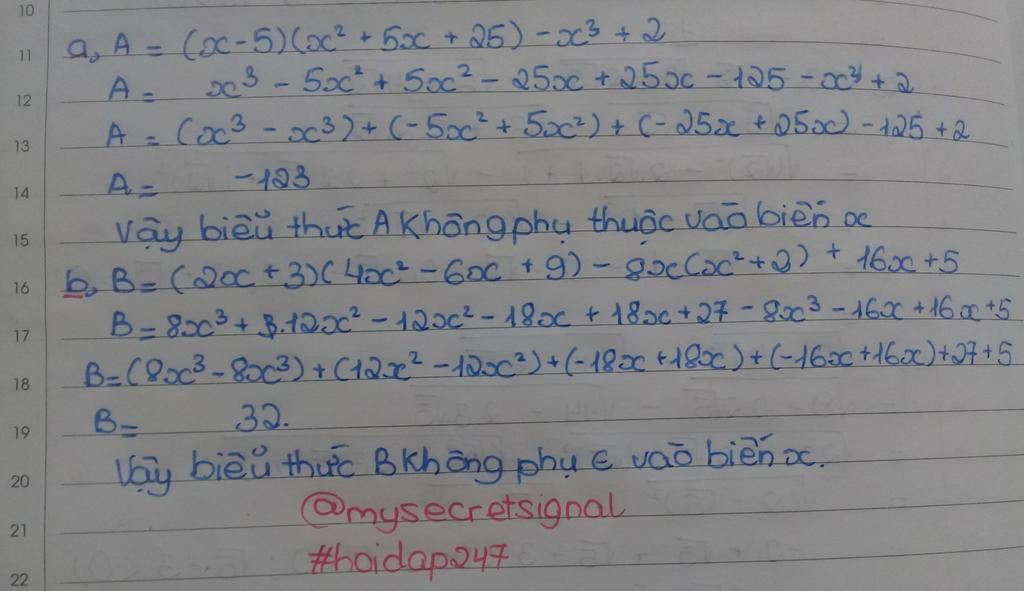 10
11 a, A = (x-5)(x² + 5x + 25) - x³ + 2
12 A = x³ - 5x² + 5x² - 25x + 25x - 125 - x³ + 2
13 A = (x³ - x³) + (-5x² + 5x²) + (-25x + 25x) - 125 + 2
14 A = -123
15 Vậy biểu thức A không phụ thuộc vào biến x
16 b, B = (2x + 3)(4x² - 6x + 9) - 8x(x² + 2) + 16x + 5
17 B = 8x³ + 12x² - 12x² - 18x + 18x + 27 - 8x³ - 16x + 16x + 5
18 B = (8x³ - 8x³) + (12x² - 12x²) + (-18x + 18x) + (-16x + 16x) + 27 + 5
19 B = 32.
20 Vậy biểu thức B không phụ ∈ vào biến x.
21 @mysecretsignal
22 #hoidap247